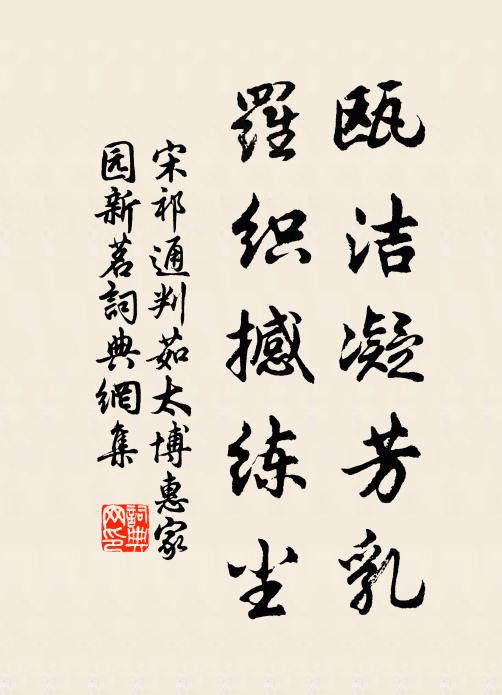 瓯洁凝芳乳
羅织撼练尘
宋祁通判茹太博惠家
园新茗詞典網集
詞典网印